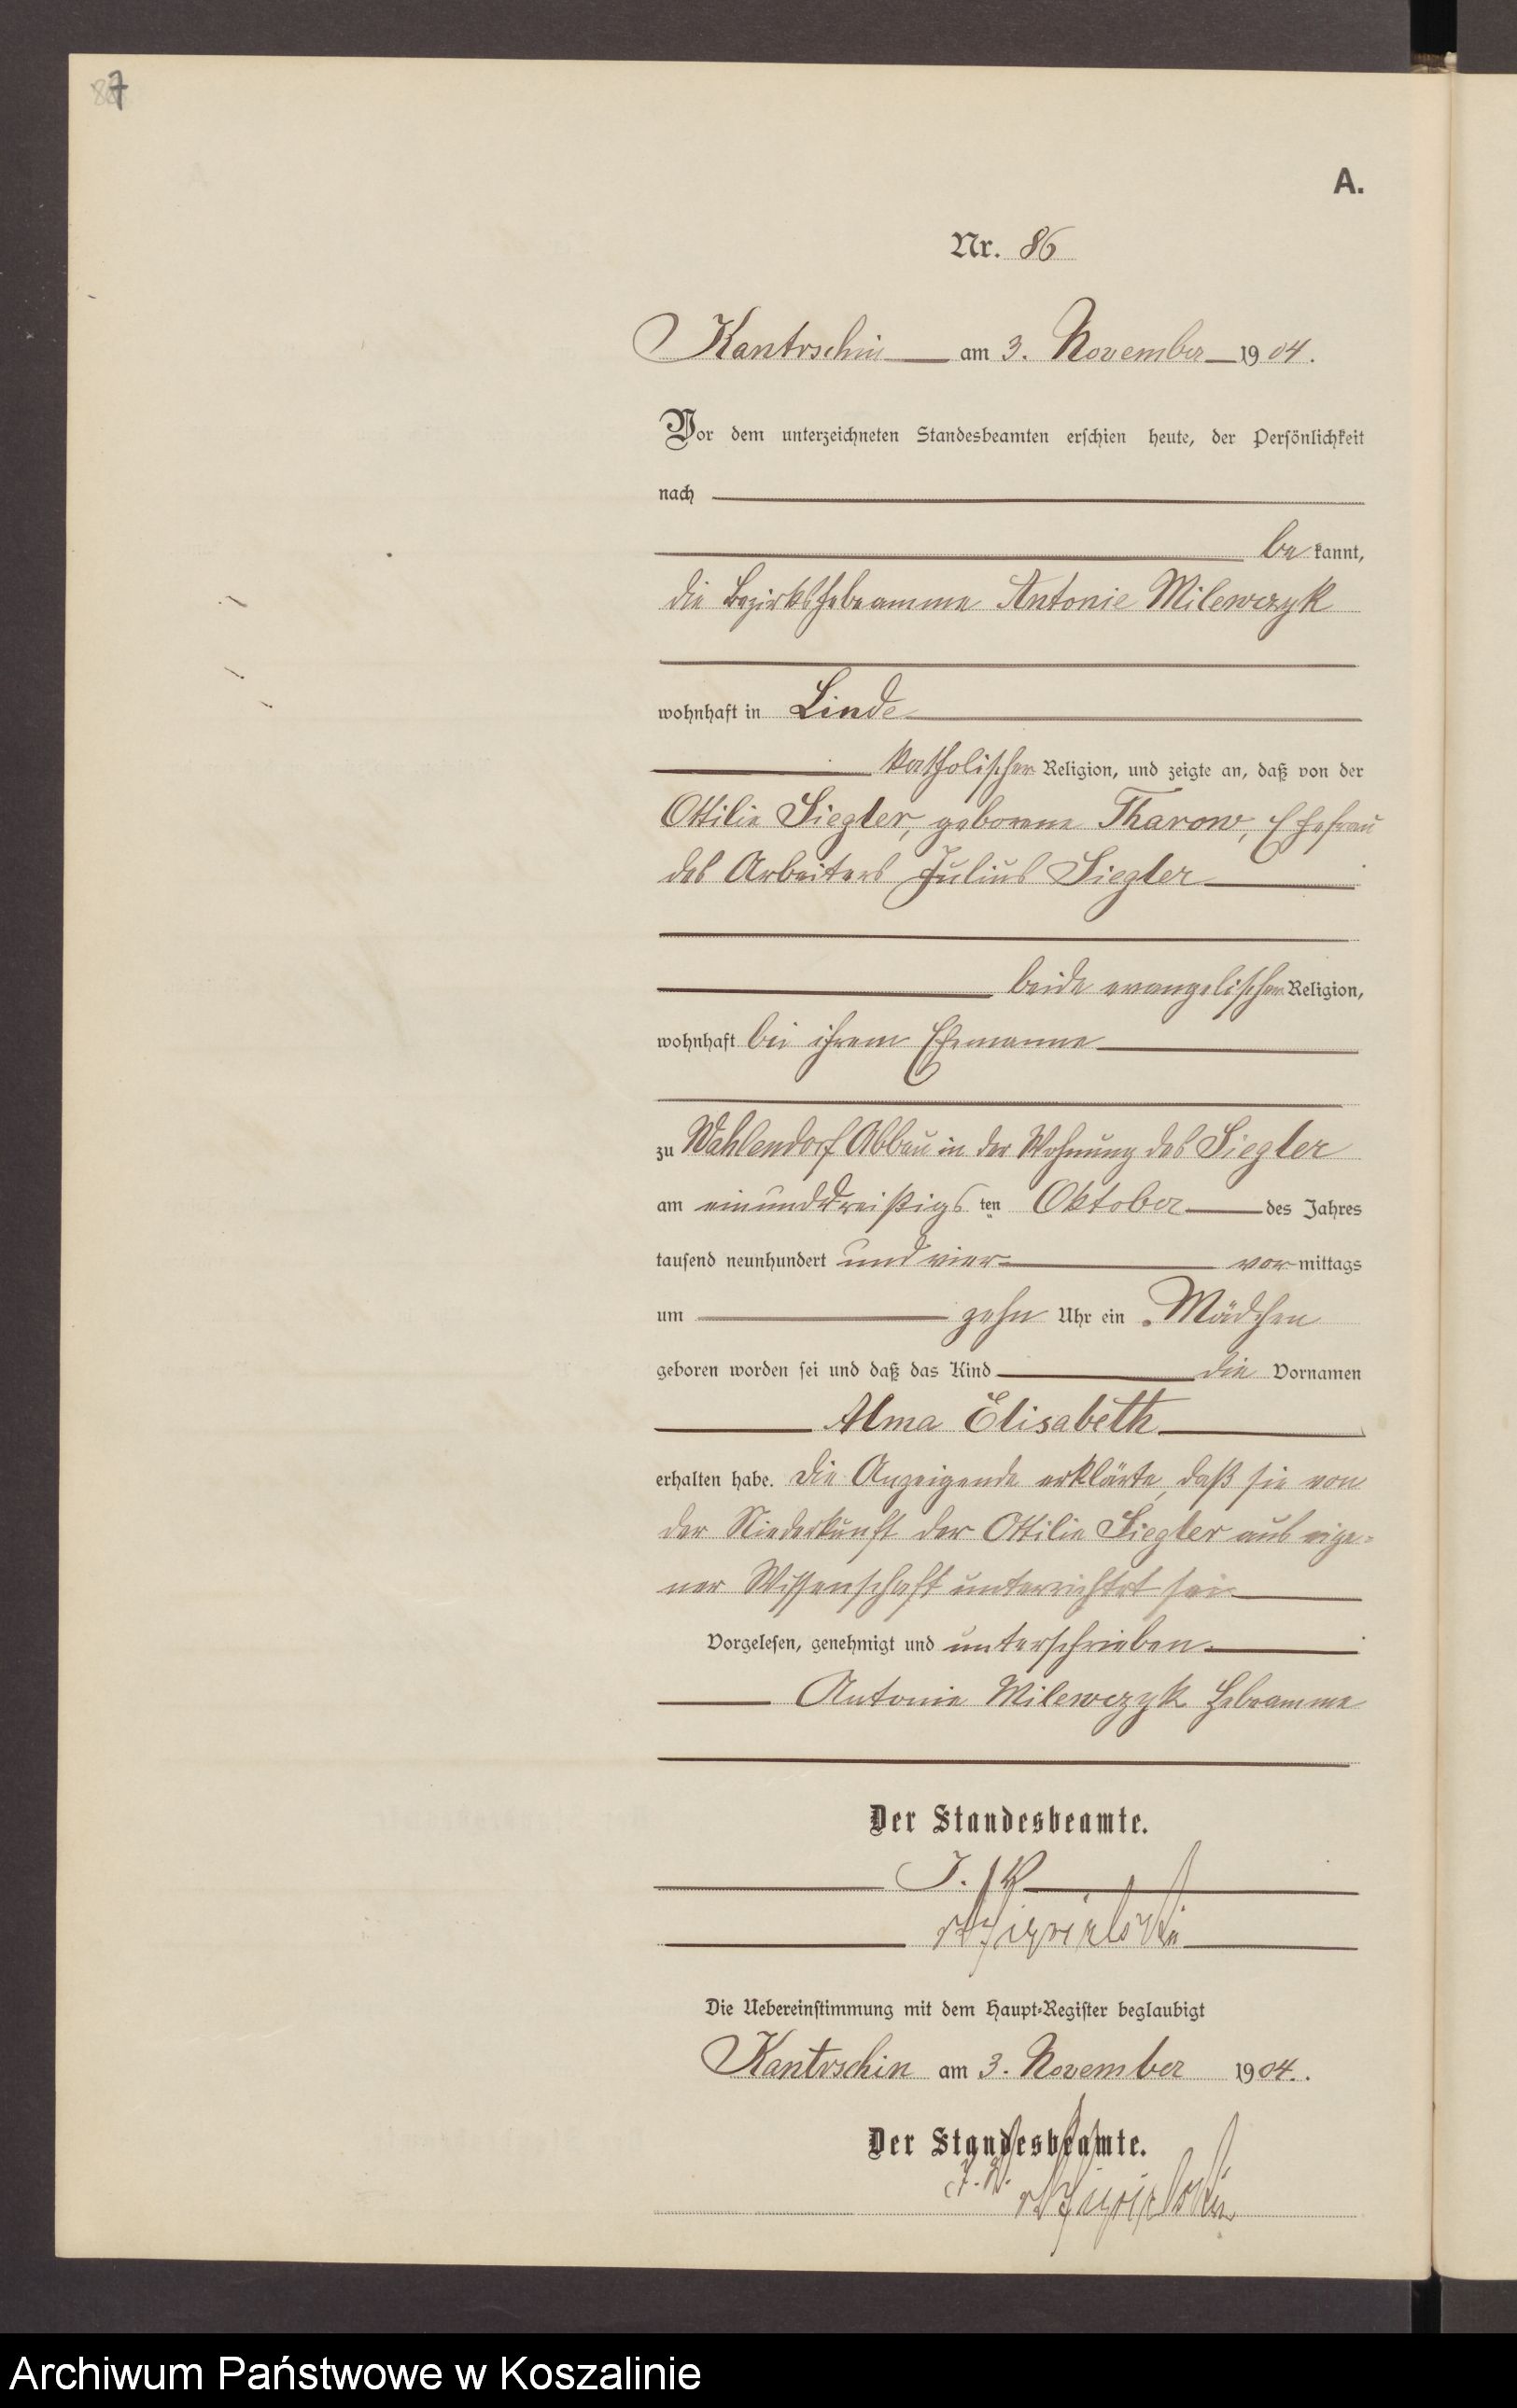 7
A.
Nr. 86
Kantrschin am 3. November 1904.
Vor dem unterzeichneten Standesbeamten erschien heute, der Persönlichkeit
nach
be kannt,
die Bezirkshebeamme Antonie Milewczyk
wohnhaft in Linde
katholischer Religion, und zeigte an, daß von der
Ottilie Siegler, geborene Tharow, Ehefrau
des Arbeiters Julius Siegler
beide evangelischer Religion,
wohnhaft bei ihrem Ehemanne
zu Wahlendorf Abbau in der Wohnung des Siegler
am einunddreißigs ten Oktober des Jahres
tausend neunhundert und vier vor mittags
um zehn Uhr ein Mädchen
geboren worden sei und daß das Kind die Vornamen
Alma Elisabeth
erhalten habe. Die Anzeigende erklärte, daß sie von
der Niederkunft der Ottilie Siegler aus eige-
ner Wissenschaft unterrichtet sei.
Vorgelesen, genehmigt und unterschrieben.
Antonie Milewczyk Hebeamme
Der Standesbeamte.
J. V.
Die Uebereinstimmung mit dem Haupt-Register beglaubigt
Kantrschin am 3. November 1904.
Der Standesbeamte.
J. V.
Archiwum Państwowe w Koszalinie